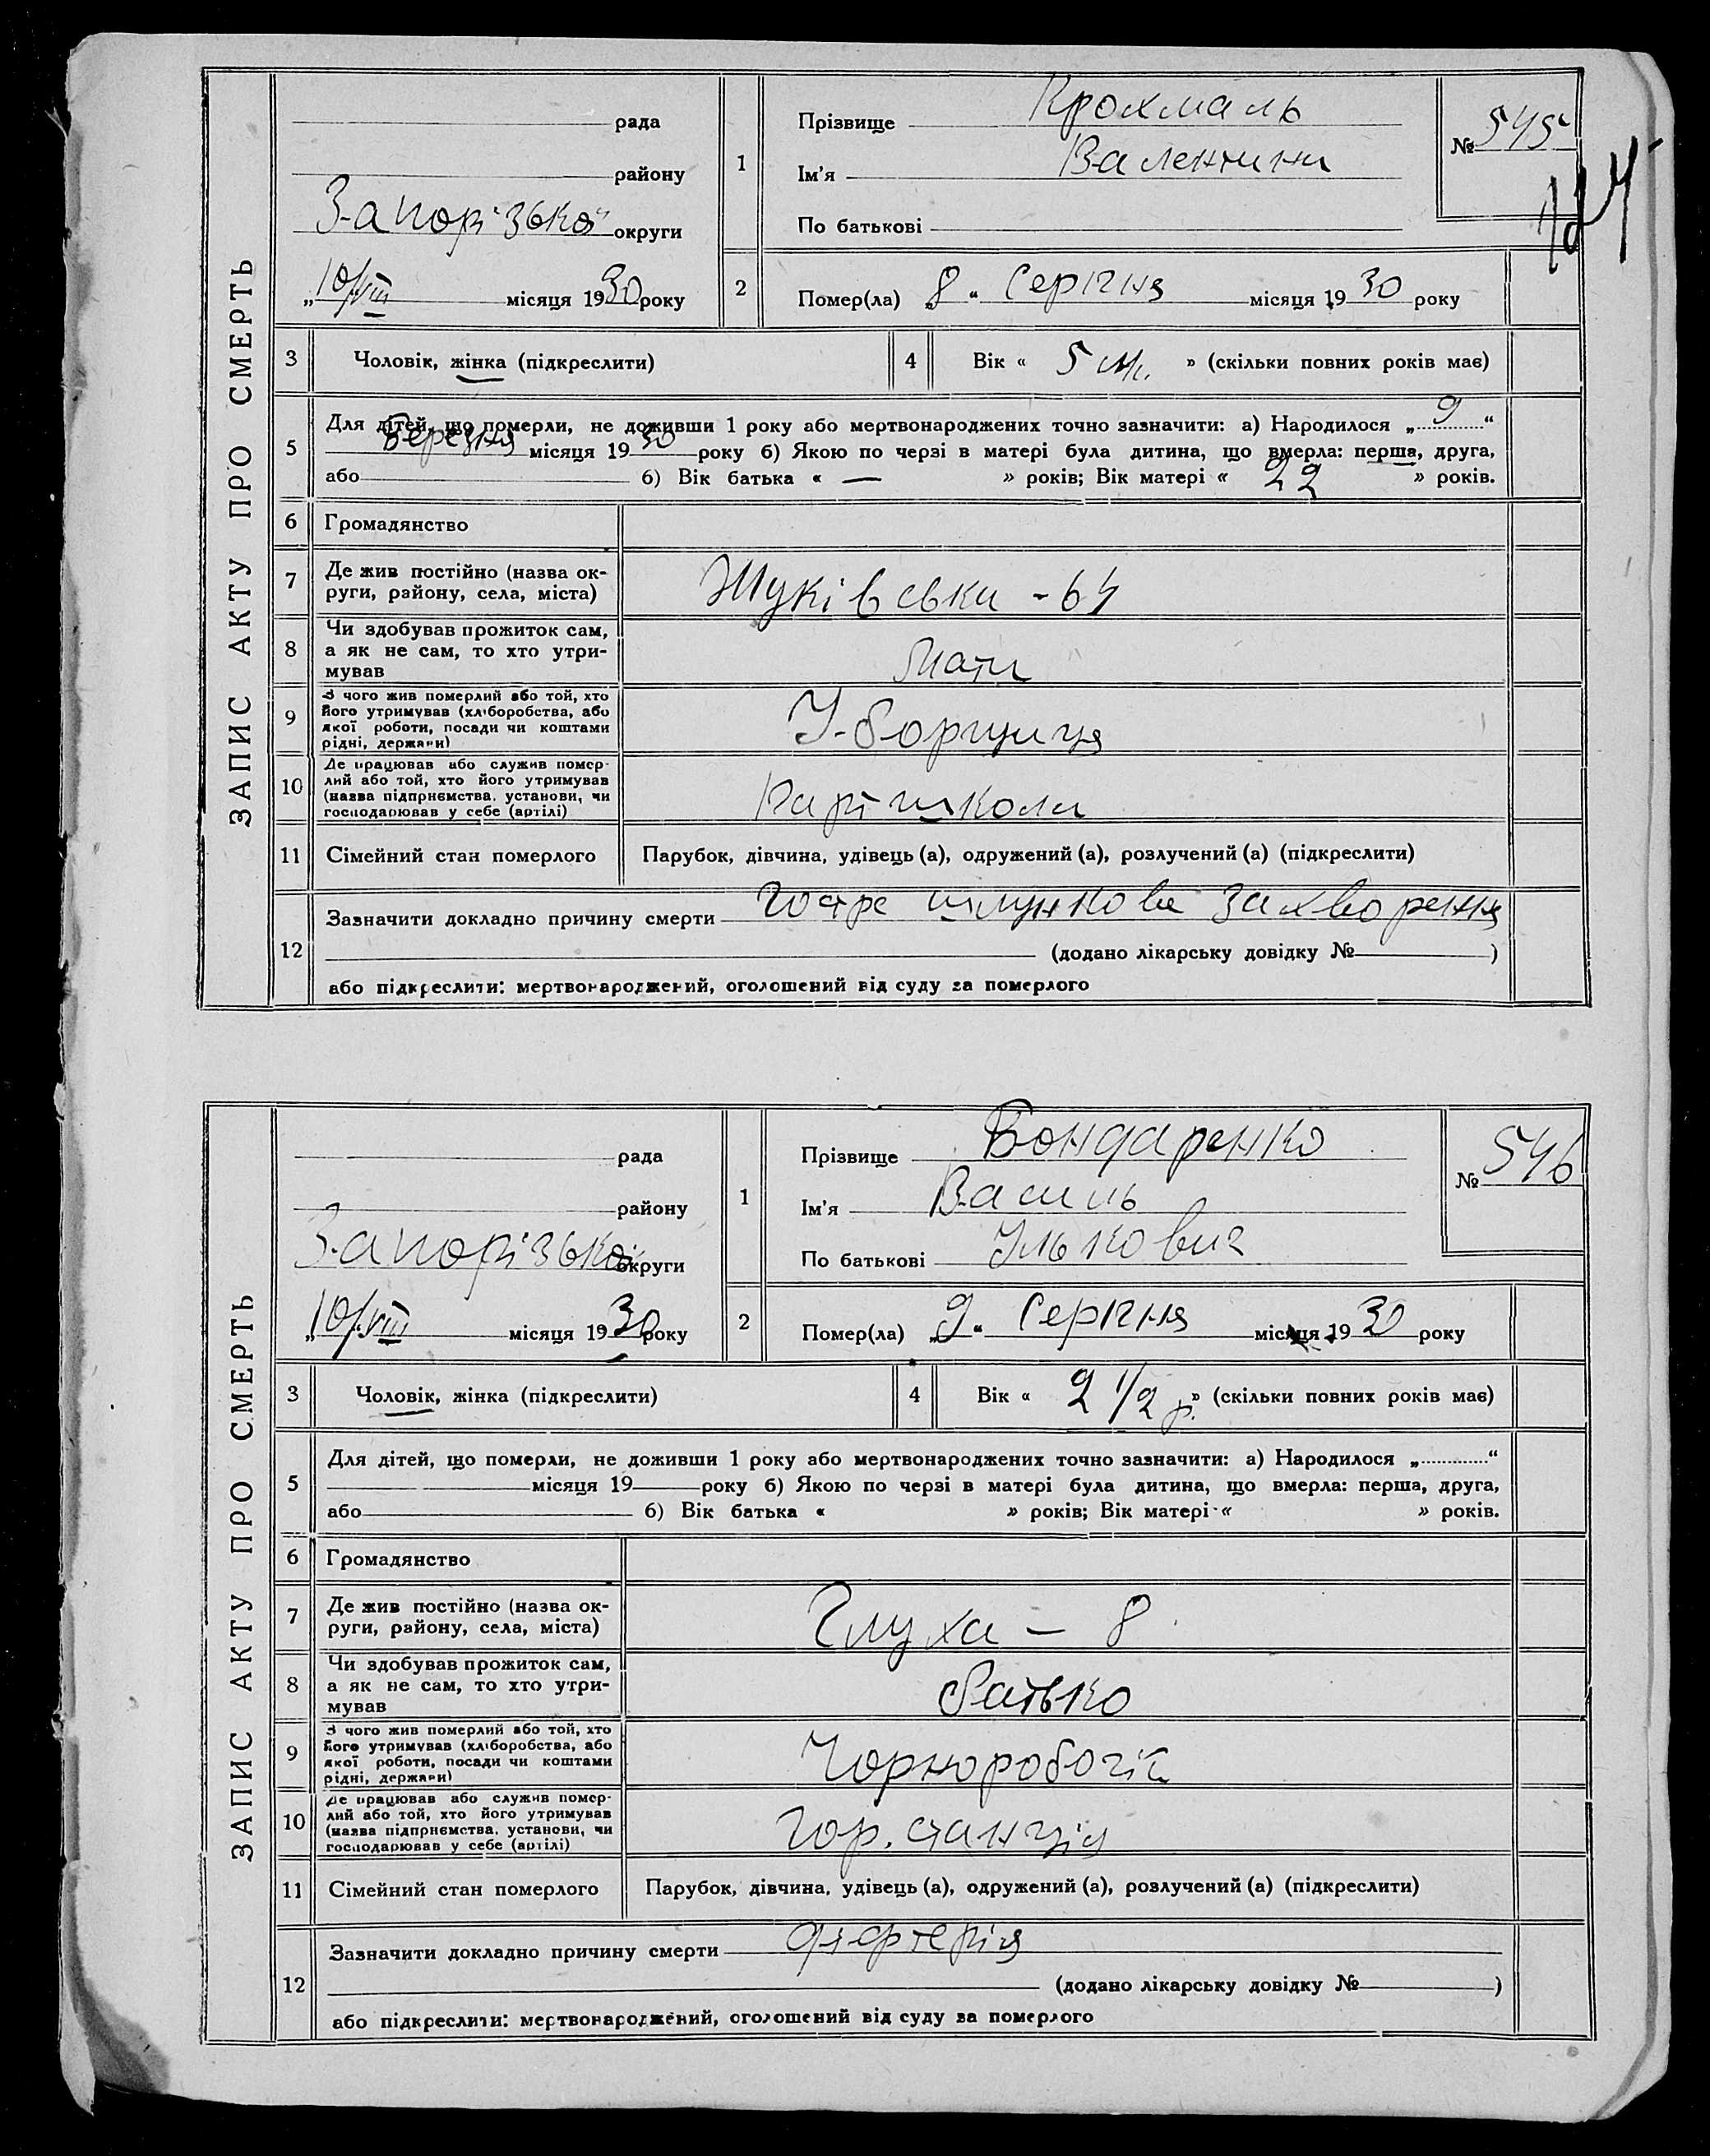 ЗАПИС АКТУ ПРО СМЕРТЬ
рада
району
Запорізької округи
„10/VIII місяця 1930 року
1
Прізвище Крохмаль
Ім'я Валентина
По батькові
№ 545
124
2
Помер(ла) „8“ Серпня місяця 1930 року
3 Чоловік, жінка (підкреслити)
4 Вік « 5 м. » (скільки повних років має)
5
Для дітей, що померли, не доживши 1 року або мертвонароджених точно зазначити: а) Народилося „9“
Березня місяця 1930 року б) Якою по черзі в матері була дитина, що вмерла: перша, друга,
або б) Вік батька « — » років; Вік матері « 22 » років.
6 Громадянство
7
Де жив постійно (назва ок-
руги, району, села, міста)
Жуківська - 64
8
Чи здобував прожиток сам,
а як не сам, то хто утри-
мував
Мати
9
З чого жив померлий або той, хто
його утримував (хліборобства, або
якої роботи, посади чи коштами
рідні, держави)
Уборщиця
10
Де працював або служив помер-
лий або той, хто його утримував
(назва підприємства, установи, чи
господарював у себе (артілі)
Парт школи
11 Сімейний стан померлого Парубок, дівчина, удівець (а), одружений (а), розлучений (а) (підкреслити)
12
Зазначити докладно причину смерти Гостре шлункове захворення
(додано лікарську довідку № )
або підкреслити: мертвонароджений, оголошений від суду за померлого
ЗАПИС АКТУ ПРО СМЕРТЬ
рада
району
Запорізької округи
„10/VIII місяця 1930 року
1
Прізвище Бондаренко
Ім'я Василь
По батькові Ількович
№ 546
2
Помер(ла) „9“ Серпня місяця 1930 року
3 Чоловік, жінка (підкреслити)
4 Вік « 2 1/2 р. » (скільки повних років має)
5
Для дітей, що померли, не доживши 1 року або мертвонароджених точно зазначити: а) Народилося „ “
місяця 19 року б) Якою по черзі в матері була дитина, що вмерла: перша, друга,
або б) Вік батька « » років; Вік матері « » років.
6 Громадянство
7
Де жив постійно (назва ок-
руги, району, села, міста)
Глуха — 8
8
Чи здобував прожиток сам,
а як не сам, то хто утри-
мував
батько
9
З чого жив померлий або той, хто
його утримував (хліборобства, або
якої роботи, посади чи коштами
рідні, держави)
Чорноробочій
10
Де працював або служив помер-
лий або той, хто його утримував
(назва підприємства, установи, чи
господарював у себе (артілі)
Гор. станція
11 Сімейний стан померлого Парубок, дівчина, удівець (а), одружений (а), розлучений (а) (підкреслити)
12
Зазначити докладно причину смерти дифтерія
(додано лікарську довідку № )
або підкреслити: мертвонароджений, оголошений від суду за померлого